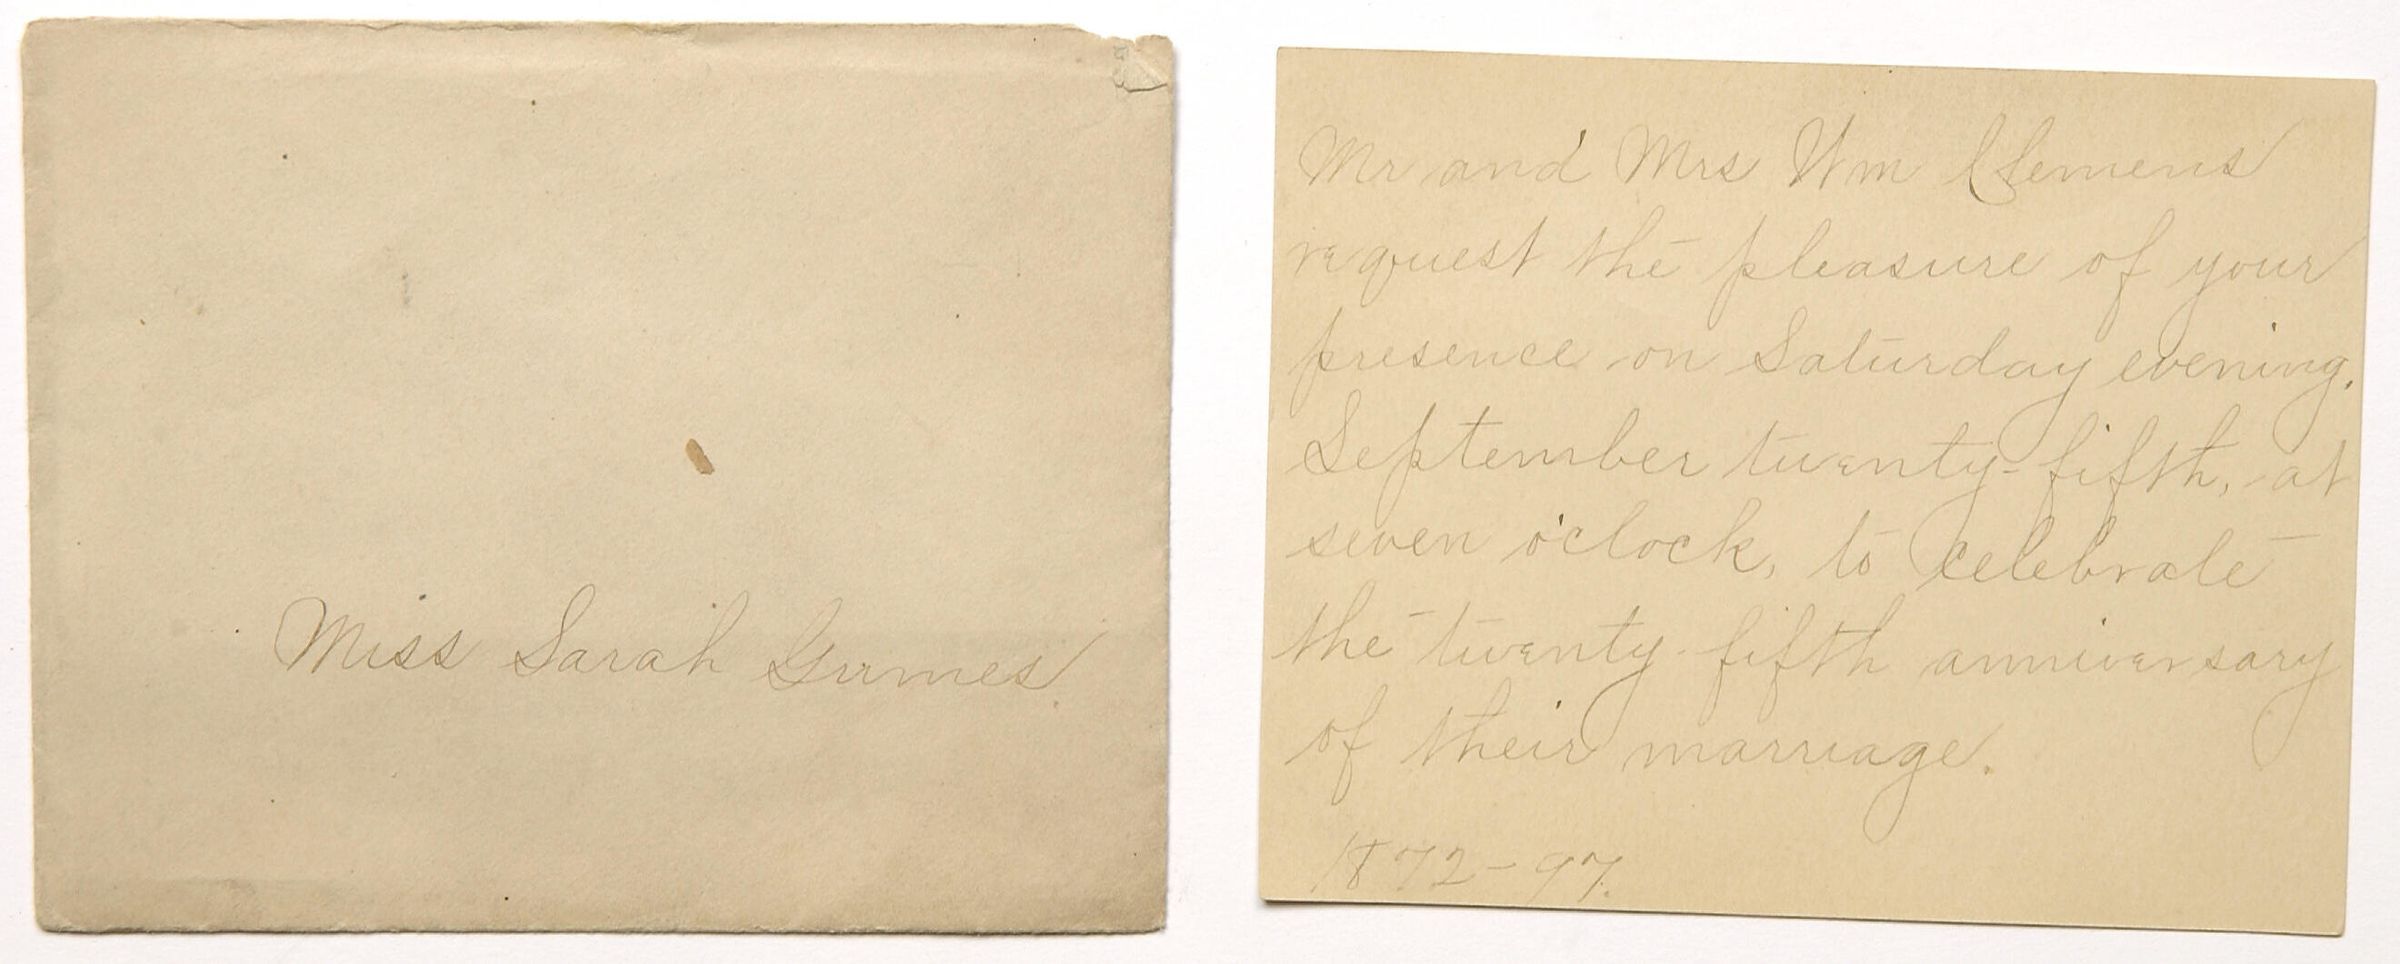 Miss Sarah Grimes
Mr and Mrs Wm Clemens
request the pleasure of your
presence on Saturday evening,
September twenty-fifth, at
seven o'clock, to celebrate
the twenty-fifth anniversary
of their marriage.
1872-97.